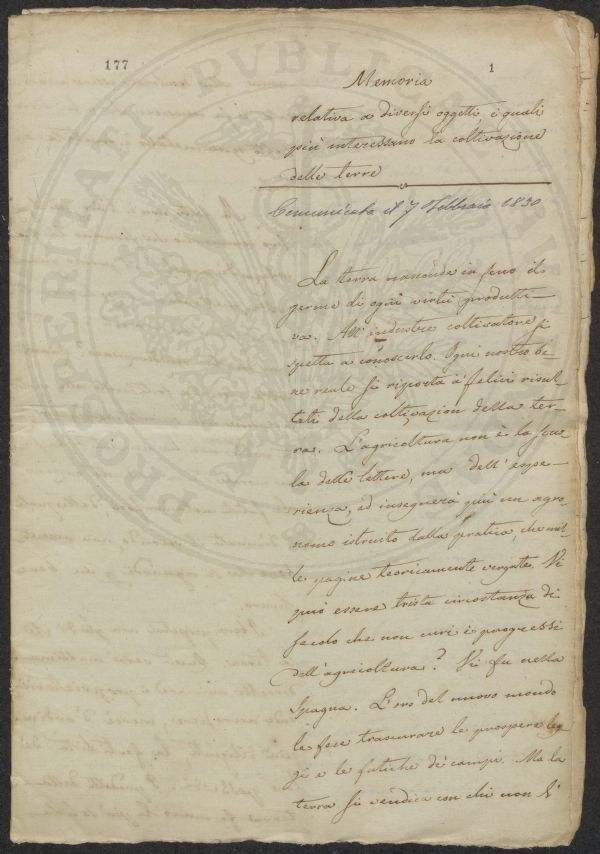 177
1
Memoria
relativa a diversi oggetti, i quali
più interessano la coltivazione
delle terre
Comunicata il 7 Febbraio 1830
La terra nasconde in seno il
germe di ogni virtù produtti-
va. All' industre coltivatore si
spetta a conoscerlo. Ogni nostro be-
ne reale si riporta a' felici risul-
tati della coltivazion della ter-
ra. L'agricoltura non è la scuo-
la delle lettere, ma dell' espe-
rienza, ed insegnerà più un agro-
nomo istruito dalla pratica, che mil-
le pagine teoricamente vergate. Vi
può essere trista circostanza di
secolo che non curi i progressi
dell'agricoltura? Vi fu nella
Spagna. L'oro del nuovo mondo
le fece trascurare le prospere leg-
gi e le fatiche de' campi. Ma la
terra si vendica con chi non l'